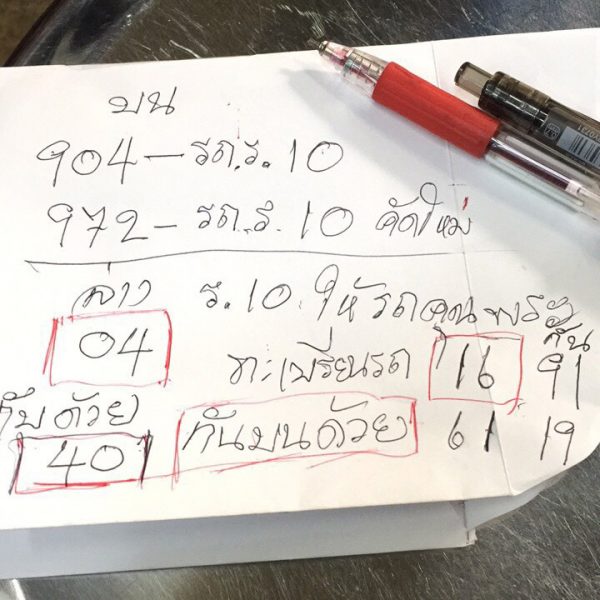 บน
904 - รถ.ร. 10
972 - รถ.ร. 10 คัดใหม่
ล่าง ร. 10 ให้รถคุณพระ
04 ทะเบียนรถ 16 กัน 91
กับด้วย
40 กันบนด้วย 61 19